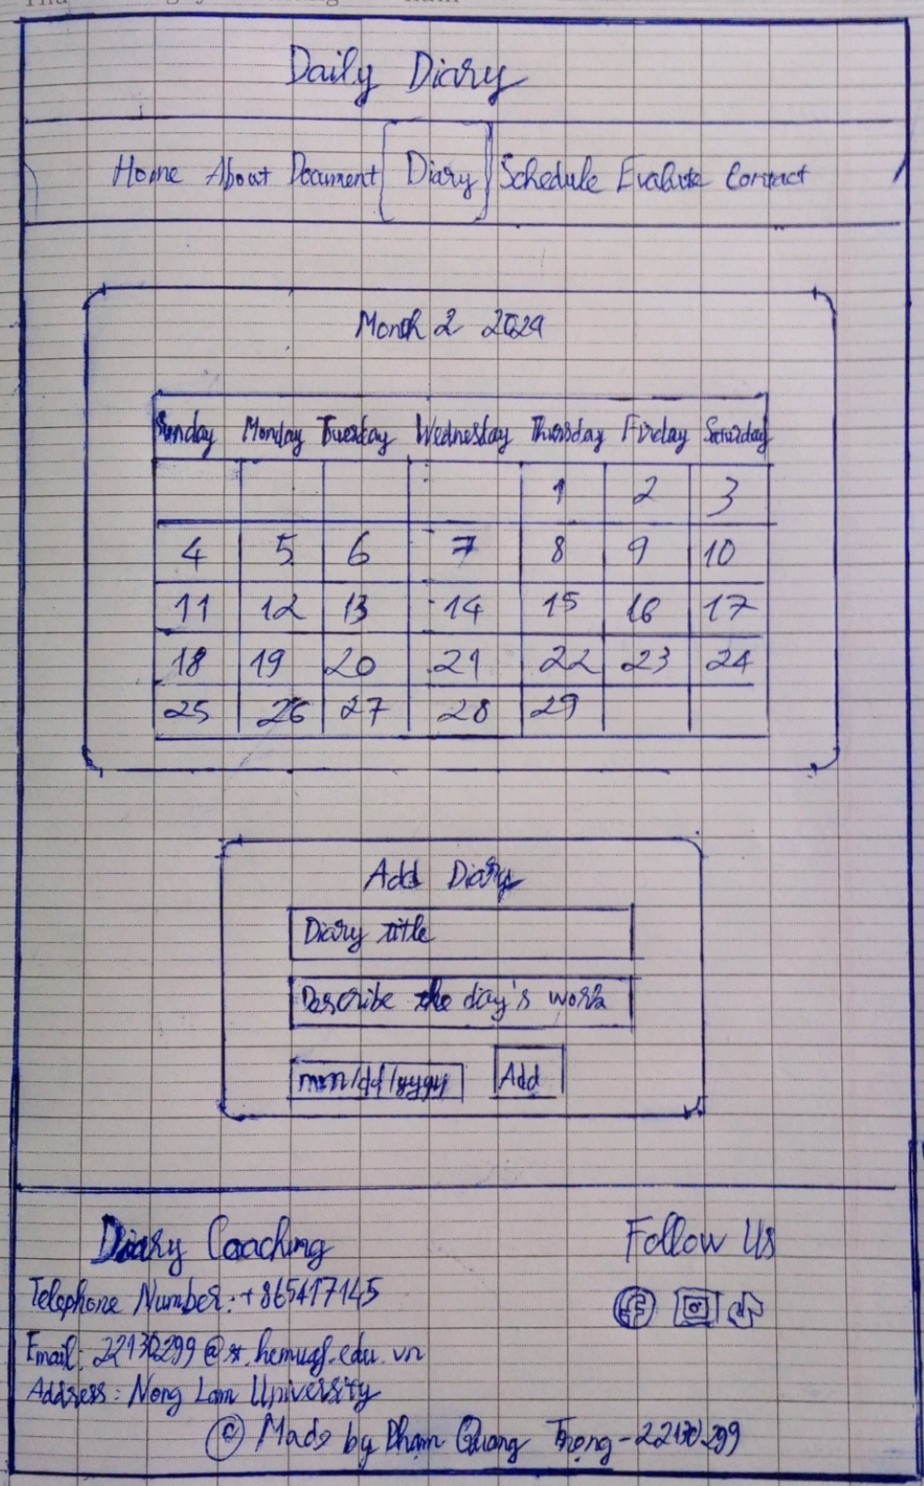 Daily Diary
Home About Document Diary Schedule Evaluate Contact
Month 2 2024
Sunday Monday Tuesday Wednesday Thursday Friday Saturday
1 2 3
4 5 6 7 8 9 10
11 12 13 14 15 16 17
18 19 20 21 22 23 24
25 26 27 28 29
Add Diary
Diary title
Describe the day's work
mm/dd/yyyy Add
Diary Coaching
Follow Us
Telephone Number: +865417145
Email: 22130299@st.hcmuaf.edu.vn
Address: Nong Lam University
© Made by Pham Quang Trọng - 22130299